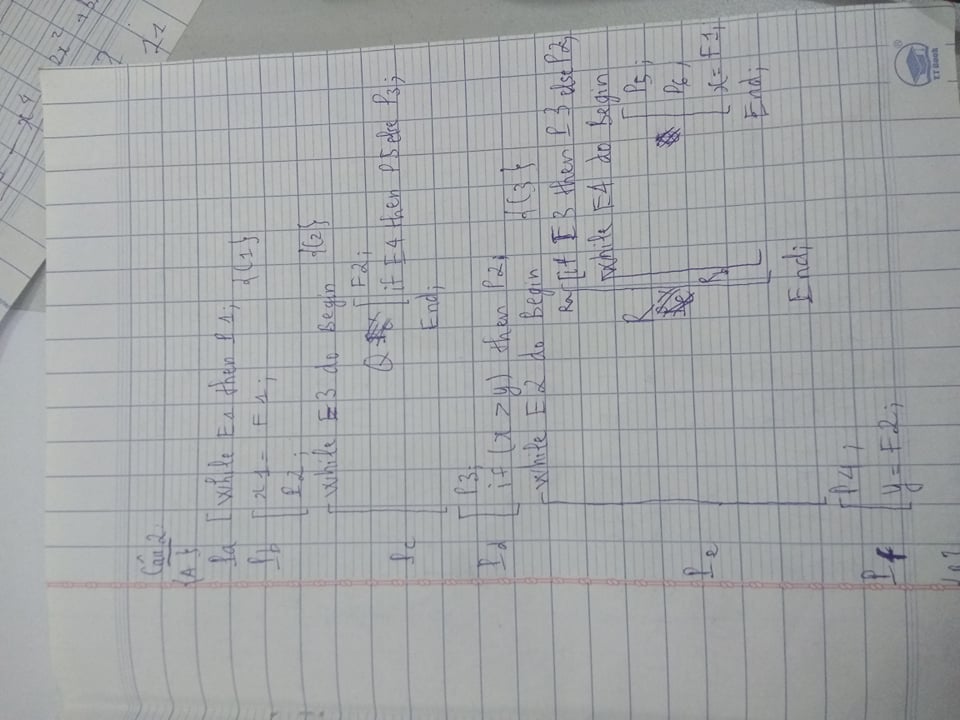 x4
2x²
71
Câu 2.
{A}
Pa [ while E1 then P1;
{C1}
Pb [ x1 = F1;
P2;
while E3 do Begin {C2}
Q [ F2;
Pc if E4 then P5 else P3;
End;
P3;
Pd [ if (x > y) then P2;
while E2 do Begin {C3}
Ra [ if E3 then P3 else P2;
while E4 do Begin
R P5;
P6;
Pe Rb x = F1;
End;
End;
P4;
Pf [ y = F2;
TT Book